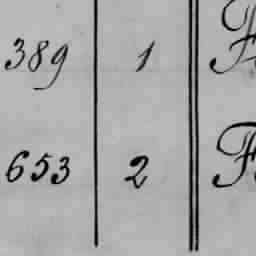 389 1
653 2